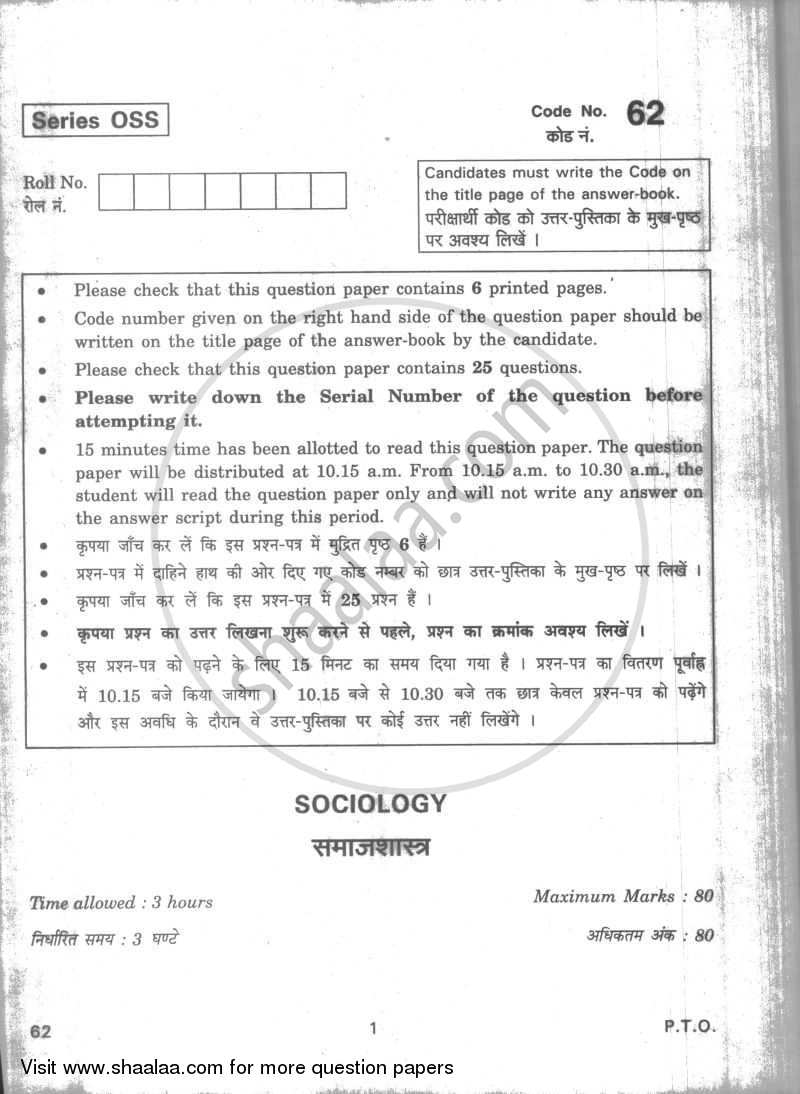 Series OSS
Code No. 62
कोड नं.
Roll No.
रोल नं.
Candidates must write the Code on
the title page of the answer-book.
परीक्षार्थी कोड को उत्तर-पुस्तिका के मुख-पृष्ठ
पर अवश्य लिखें ।
• Please check that this question paper contains 6 printed pages.
• Code number given on the right hand side of the question paper should be
written on the title page of the answer-book by the candidate.
• Please check that this question paper contains 25 questions.
• Please write down the Serial Number of the question before
attempting it.
• 15 minutes time has been allotted to read this question paper. The question
paper will be distributed at 10.15 a.m. From 10.15 a.m. to 10.30 a.m., the
student will read the question paper only and will not write any answer on
the answer script during this period.
• कृपया जाँच कर लें कि इस प्रश्न-पत्र में मुद्रित पृष्ठ 6 हैं ।
• प्रश्न-पत्र में दाहिने हाथ की ओर दिए गए कोड नम्बर को छात्र उत्तर-पुस्तिका के मुख-पृष्ठ पर लिखें ।
• कृपया जाँच कर लें कि इस प्रश्न-पत्र में 25 प्रश्न हैं ।
• कृपया प्रश्न का उत्तर लिखना शुरू करने से पहले, प्रश्न का क्रमांक अवश्य लिखें ।
• इस प्रश्न-पत्र को पढ़ने के लिए 15 मिनट का समय दिया गया है । प्रश्न-पत्र का वितरण पूर्वाह्न
में 10.15 बजे किया जायेगा । 10.15 बजे से 10.30 बजे तक छात्र केवल प्रश्न-पत्र को पढ़ेंगे
और इस अवधि के दौरान वे उत्तर-पुस्तिका पर कोई उत्तर नहीं लिखेंगे ।
shaalaa.com
SOCIOLOGY
समाजशास्त्र
Time allowed : 3 hours
Maximum Marks : 80
निर्धारित समय : 3 घण्टे
अधिकतम अंक : 80
62
1
P.T.O.
Visit www.shaalaa.com for more question papers